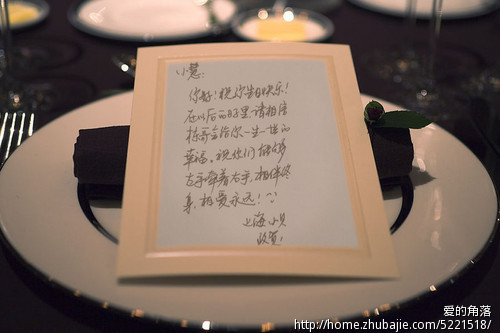 小慧:
你好!祝你生日快乐!
在以后的日子里请相信
栋哥会给你一生一世的
幸福。祝你们能够
左手牵着右手,相伴终
身,相爱永远!:)
上海小贝
收笔!
爱的角落
http://home.zhubajie.com/5221518/